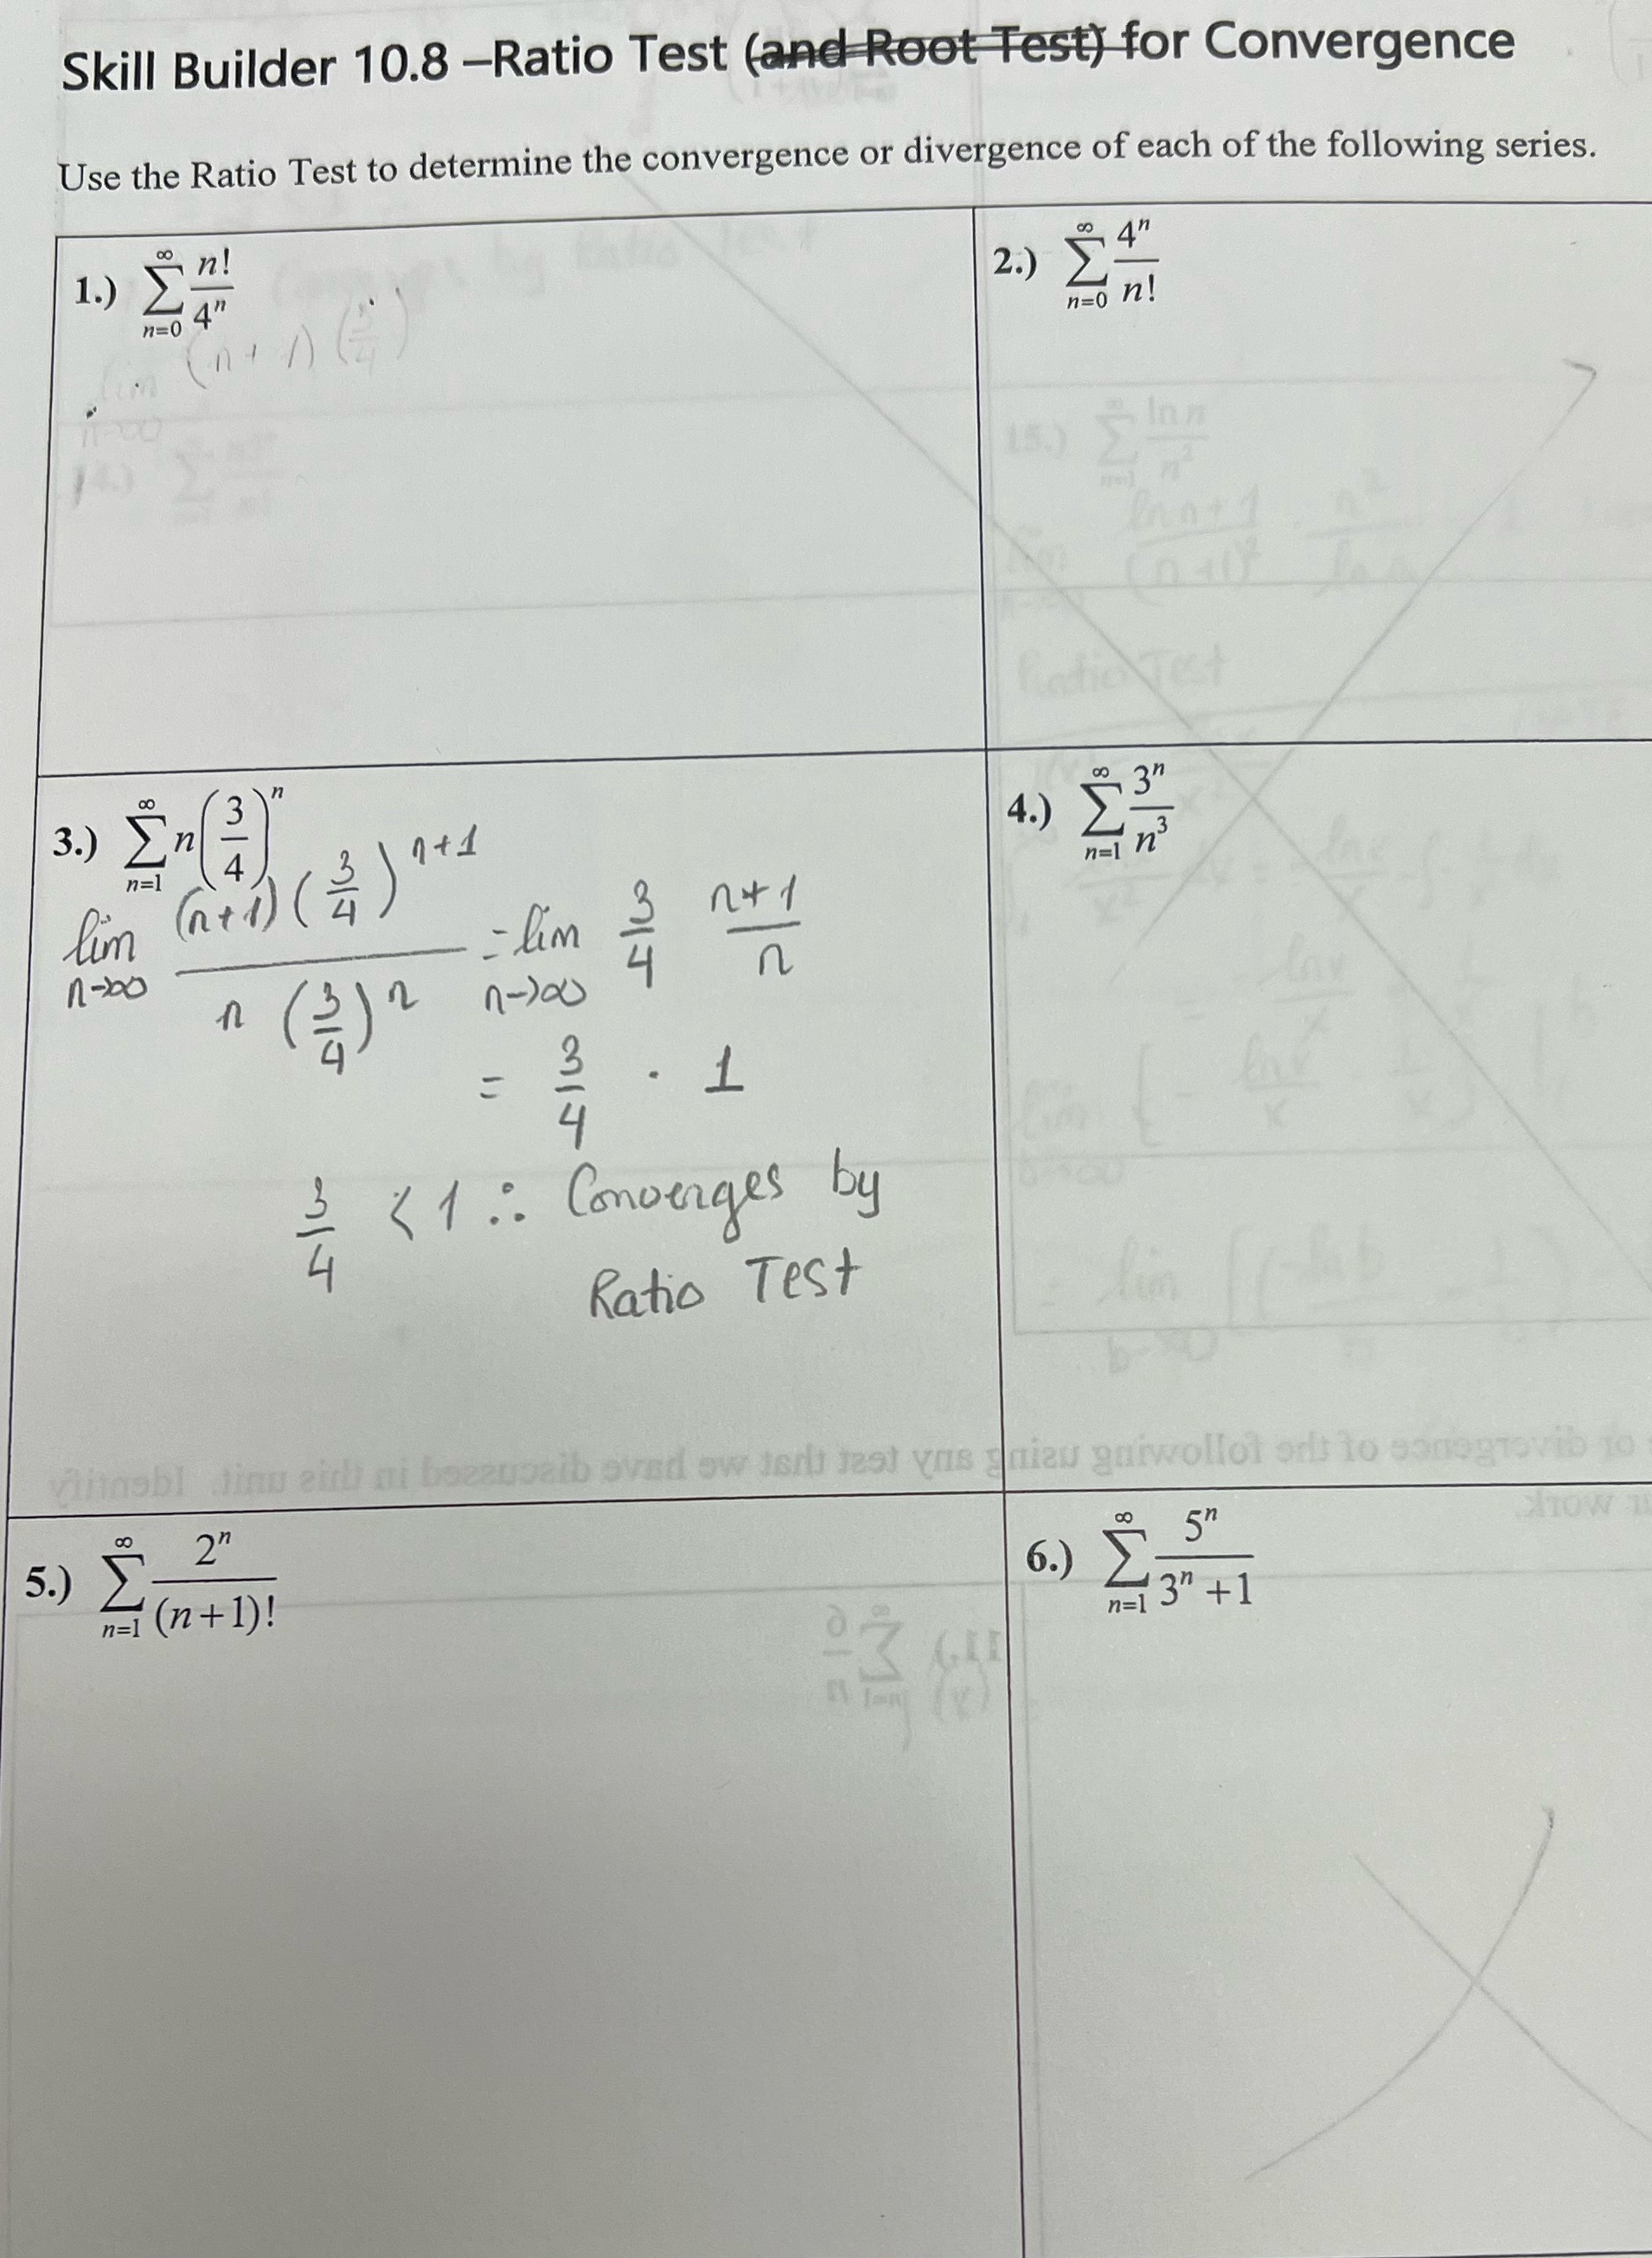 Skill Builder 10.8 –Ratio Test (and Root Test) for Convergence
Use the Ratio Test to determine the convergence or divergence of each of the following series.
1.) ∑_{n=0}^{∞} n!/4^n
(n+1)(3/4)
lim n→∞
2.) ∑_{n=0}^{∞} 4^n/n!
3.) ∑_{n=1}^{∞} n(3/4)^n
lim n→∞ (n+1)(3/4)^{n+1} / n(3/4)^n = lim n→∞ 3/4 n+1/n
= 3/4 · 1
3/4 < 1 ∴ Converges by
Ratio Test
4.) ∑_{n=1}^{∞} 3^n/n^3
5.) ∑_{n=1}^{∞} 2^n/(n+1)!
6.) ∑_{n=1}^{∞} 5^n/3^n+1